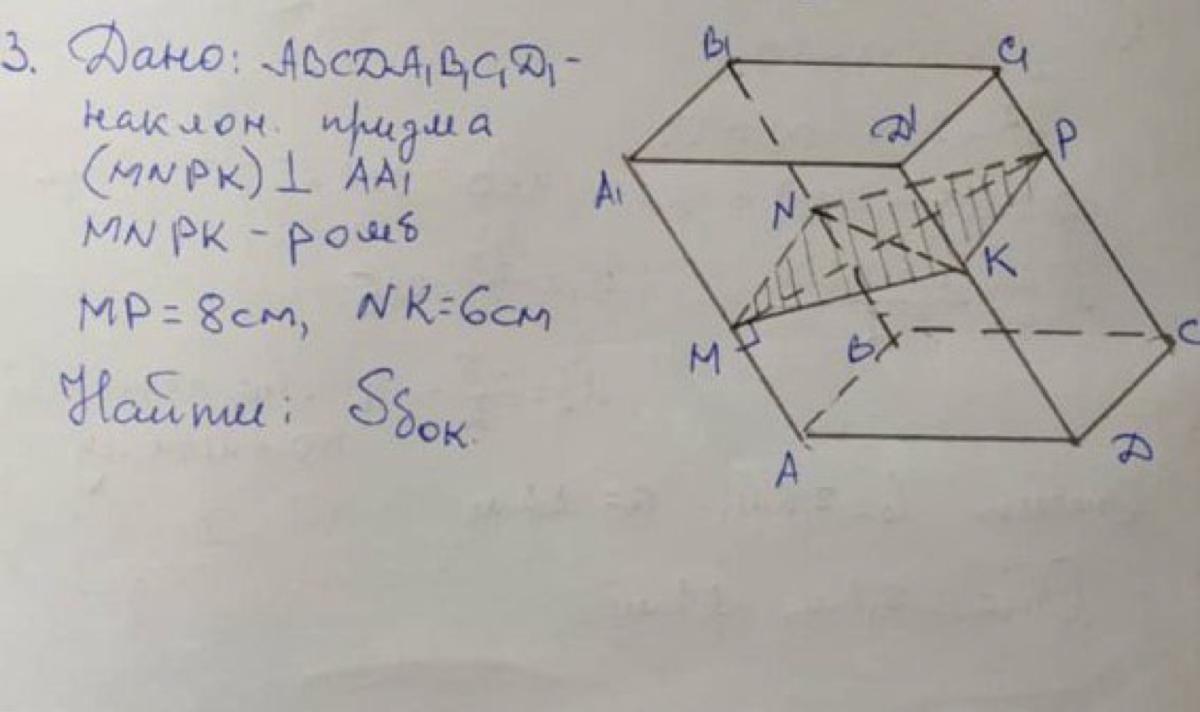 3. Дано: ABCDA₁B₁C₁D₁ -
наклон. призма
(MNPK) ⊥ AA₁
MNPK - ромб
MP = 8см, NK = 6см
Найти: Sбок.
B₁
C₁
D₁
P
A₁
N
K
M
B
C
A
D